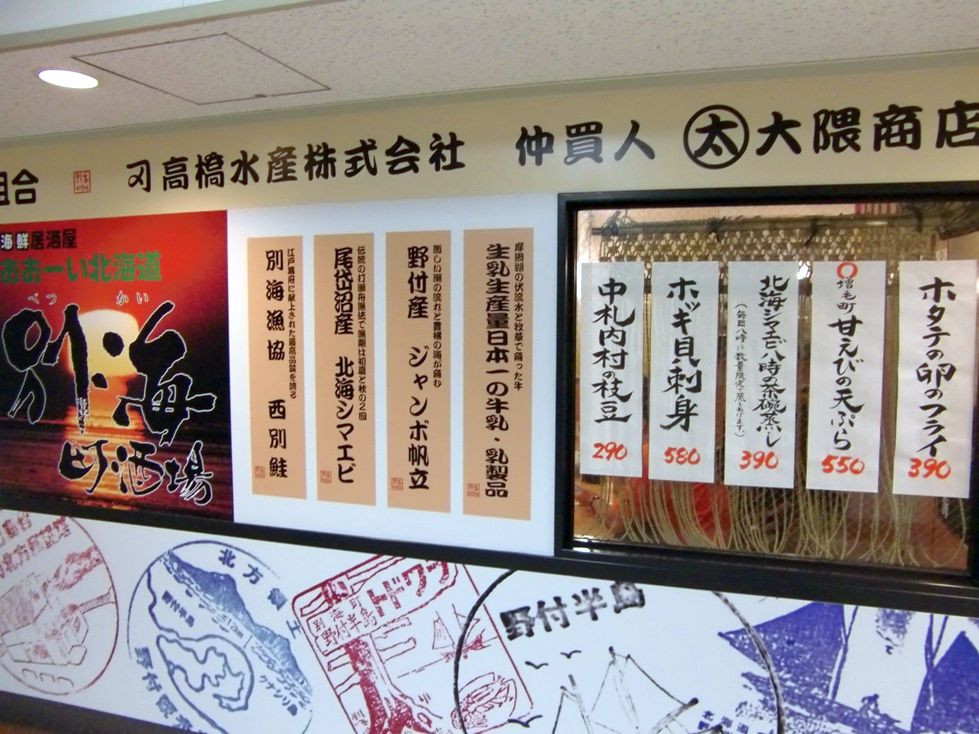 組合
高橋水産株式会社 仲買人 太 大隈商店
海鮮居酒屋
おおーい北海道
べつ かい
別海
町酒場
江戸幕府に献上された最高品質を誇る
別海漁協 西別鮭
伝統の打瀬舟漁法で漁期は初夏と秋の2回
尾岱沼産 北海シマエビ
激しい潮の流れと豊穣の海が育む
野付産 ジャンボ帆立
摩周湖の伏流水と牧草で育った牛
生乳生産量日本一の牛乳・乳製品
中札内村の枝豆
290
ホッキ貝刺身
580
北海シマエビ八時の茶碗蒸し
390
増毛町 甘えびの天ぷら
550
ホタテの卵のフライ
390
北方領土
野付半島
クナシリ島
別海町
野付半島
トドワラ
野付半島